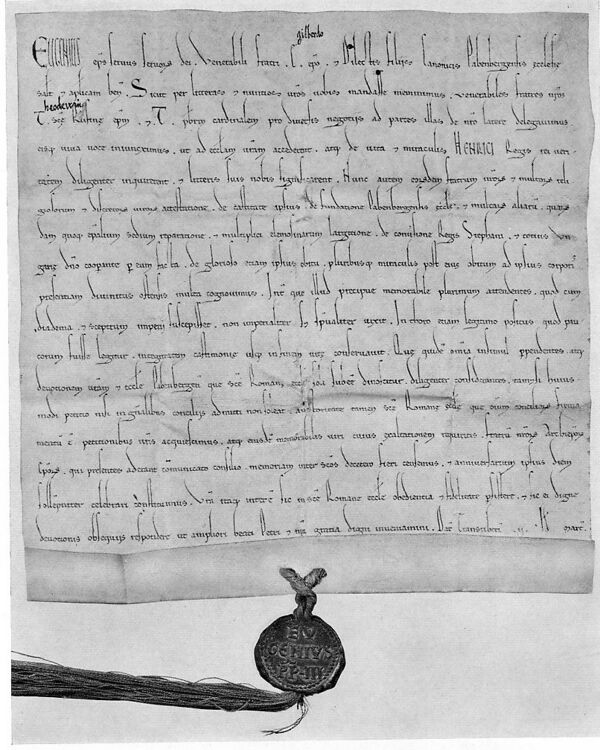 gilberto
EUGENIUS ep̄s servus servorū dei. Venerabili fratri . E. ep̄o . & Dilectis filiis canonicis Babenbergensis ecclesie
salt̄ & aplicam ben̄. Sicut per litteras & nuntios vr̄os nobis mandasse meminimus . venerabiles fratres nr̄os
theodewinū
T. sc̄ę Rufinę ep̄m , & T. pbr̄m cardinalem pro diversis negotiis ad partes illas de nr̄o latere delegavimus
eisq; viva voce iniunximus , ut ad ecclam vr̄am accederent . atq; de vita & miraculis HENRICI Regis rei veri-
tatem diligenter inquirerent , & litteris suis nobis significarent . Nunc autem eorundem fratrum nr̄orū & multorū reli
giosorum & discretorū virorū attestatione , de castitate ipsius . de fundatione Babenbergensis eccle . & multarū aliarū . quarū
dam quoq; epaliū sedium reparatione , & multiplici elemosinarum largitione . de conversione Regis Stephani . & totius Un
garię dn̄o cooperante p eum facta . de glorioso etiam ipsius obitu . pluribusq; miraculis post eius obitum ad ipsius corporis
presentiam divinitus ostensis multa cognovimus . Inter que illud precipue memorabile plurimum attendentes . quod cum
diadema , & sceptrum imperii suscepisset . non imperialiter s; spualiter vixit . In thoro etiam legitimo positus quod pau
corum fuisse legitur . integritatem castimonię usq; in finem vitę conservavit . Quę quidē omia insimul ppendentes . atq;
devotionem vr̄am & eccle Babenbergen̄ que sc̄e Romane ecclę soli subesse dinoscitur . diligenter considerantes . tametsi huius-
modi petitio nisi in generalibus conciliis admitti non soleat . auctoritate tamen sc̄e Romanę ecclę que omiū conciliorū firma
mentū ē . petitionibus vr̄is acquiescimus . atq; eiusdē memorabilis viri cuius exaltationem requiritis fratrū nr̄orū archiepōrū
epōrū . qui presentes aderant communicato consilio . memoriam inter sc̄os de cetero fieri censemus . & anniversarium ipsius diem
sollempniter celebrari constituimus . Vr̄a itaq; interē sic in sc̄e Romane eccle obedientia & fidelitate persistere . & sic ei digne
devotionis obsequiis respondere ut ampliori beati Petri & nr̄a gratia digni inveniamini . Dat̄ Transtiberī . ii . Id̄ mart̄.
EU
GENIUS
PP III